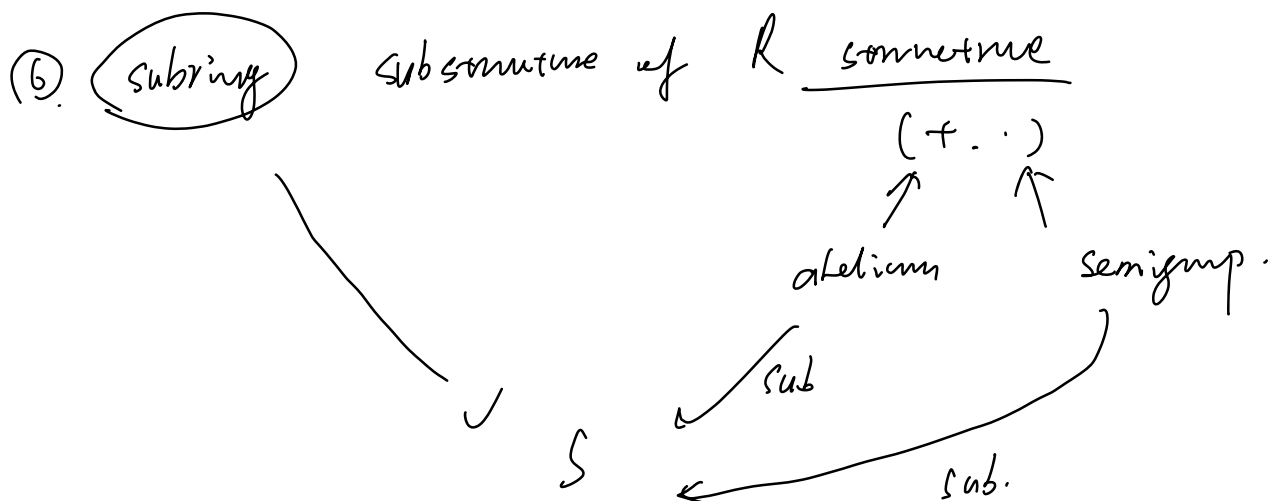 ⑥. subring substructure of R structure
(+. ·)
abelian semigroup.
sub
S
sub.